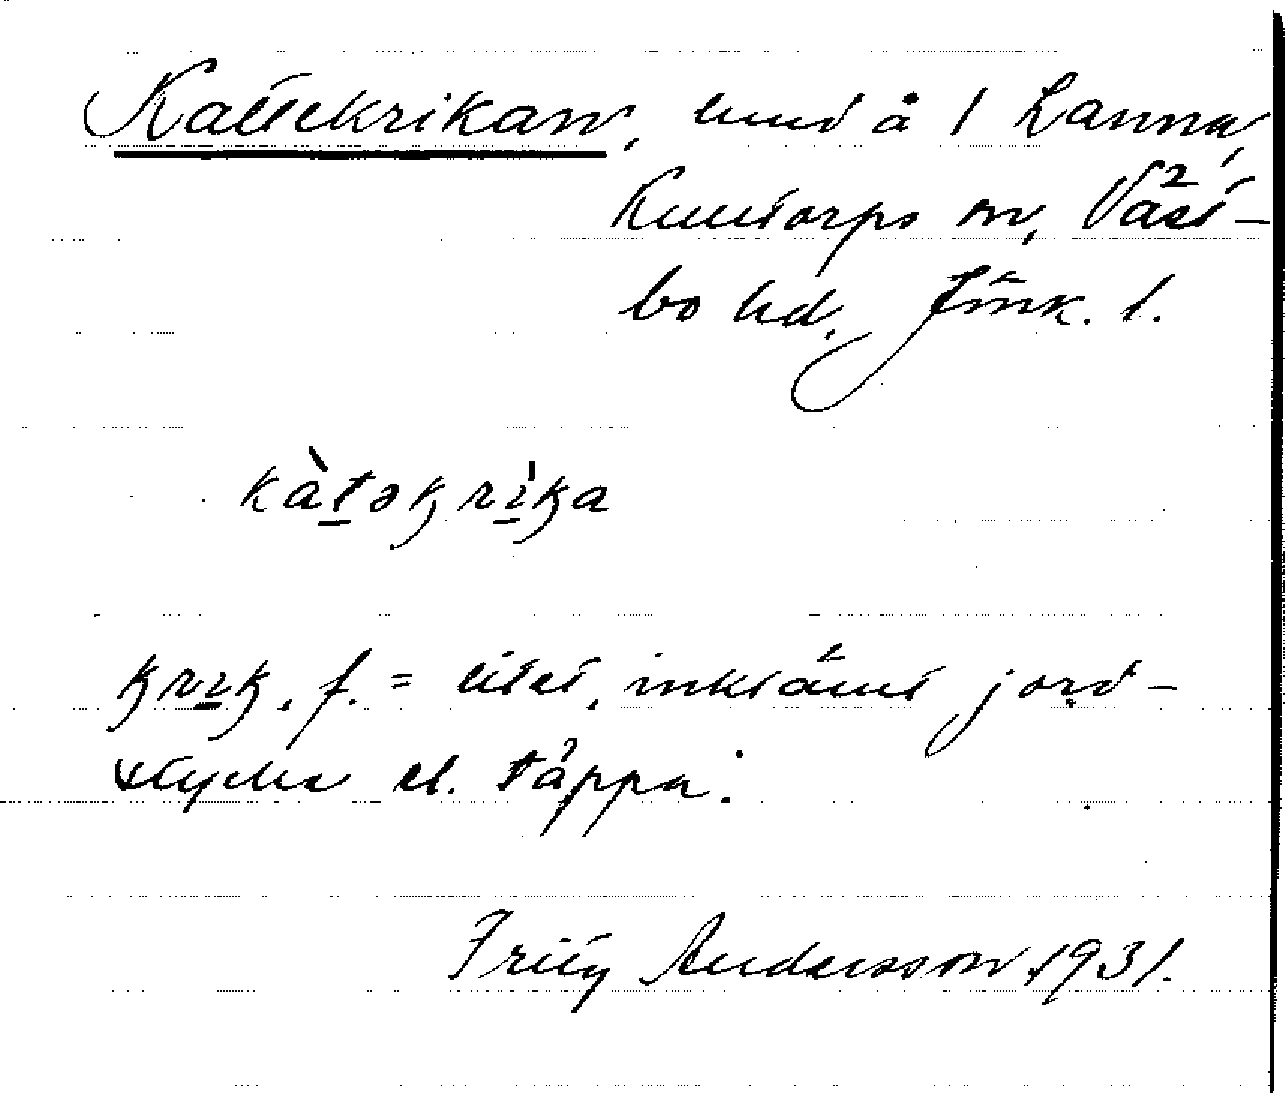 Kattekrikan, lund å 1 Lanna,
Kulltorps sn, Väst-
bo hd. Jönk. l.
kàtəkrìka
krik, f. = litet, inklämt jord-
stycke el. täppa.
Frity Andersson 1931.